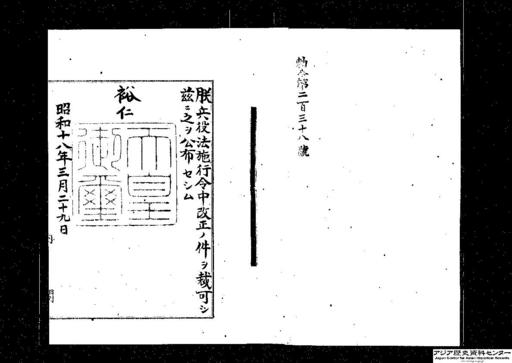 勅令第二百三十八號
朕兵役法施行令中改正ノ件ヲ裁可シ
茲ニ之ヲ公布セシム
裕仁
天皇御璽
昭和十八年三月二十九日
アジア歴史資料センター
Japan Center for Asian Historical Records